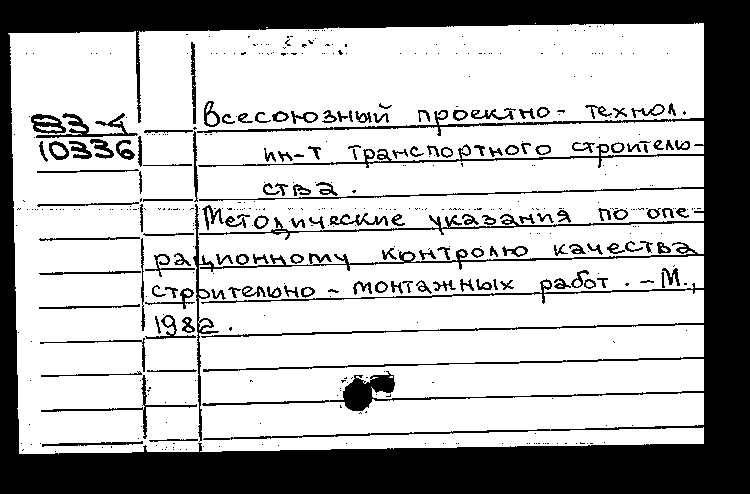 Всесоюзный проектно-технол.
83-4
10336 ин-т транспортного строитель-
ства.
Методические указания по опе-
рационному контролю качества
строительно-монтажных работ. - М.,
1982.